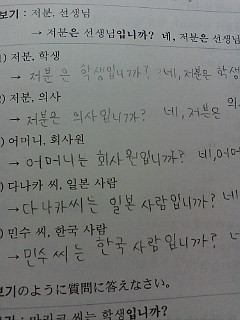 보기 : 저분, 선생님
→ 저분은 선생님입니까? 네, 저분은 선생님
1) 저분, 학생
→ 저분은 학생입니까? 네, 저분은 학생
2) 저분, 의사
→ 저분은 의사입니까? 네, 저분은 의
3) 어머니, 회사원
→ 어머니는 회사원입니까? 네, 어머
4) 다나카 씨, 일본 사람
→ 다나카씨는 일본 사람입니까? 네
5) 민수 씨, 한국 사람
→ 민수 씨는 한국 사람입니까? 네
보기のように質問に答えなさい。
씨는 학생입니까?